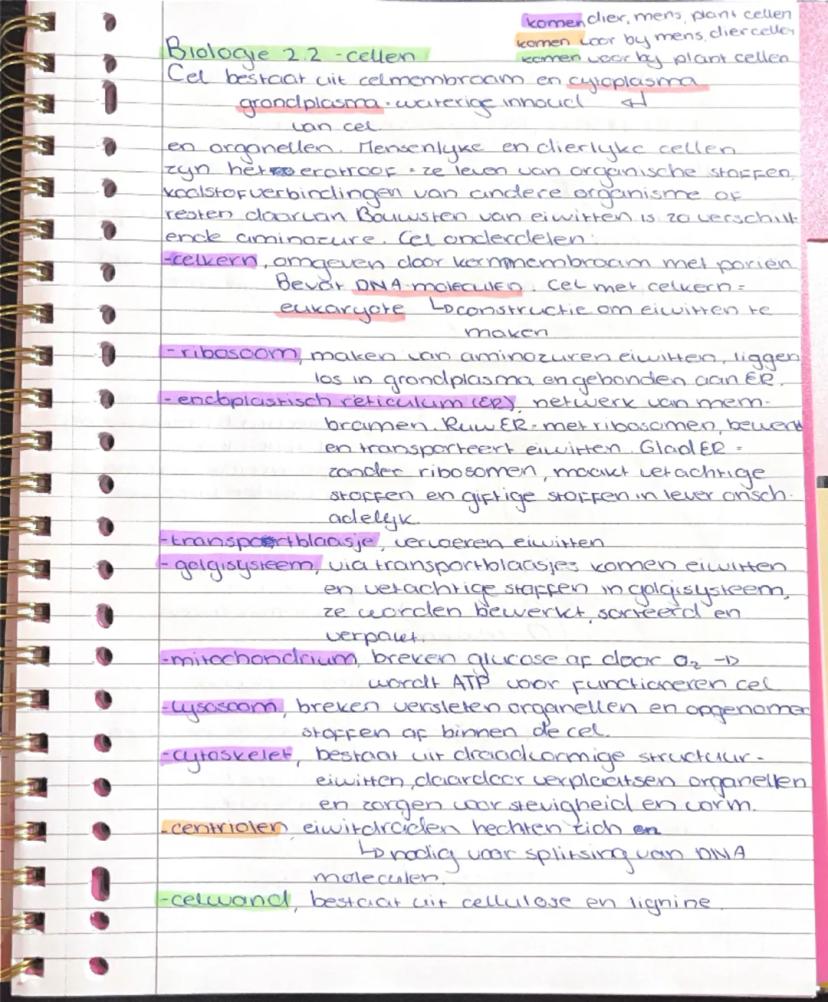 komen dier, mens, plant cellen
komen voor by mens, diercellen
komen voor by plant cellen
Biologie 2.2 - cellen
Cel bestaat uit celmembraam en cytoplasma
grondplasma = waterige inhoud ↵
van cel
en organellen. Mensenlyke en dierlyke cellen
zyn heteroerotroof = ze leven van organische stoffen,
koolstofverbindingen van andere organisme of
resten daarvan. Bouwsten van eiwitten is 20 verschill-
ende aminozure. Cel onderdelen:
-celkern, omgeven door kernmembraam met poriën
Bevat DNA-moleculen. Cel met celkern =
eukaryote ↳constructie om eiwitten te
maken
-ribosoom, maken van aminozuren eiwitten, liggen
los in grondplasma en gebonden aan ER.
-endoplastisch reticulum (ER), netwerk van mem-
bramen. Ruw ER = met ribosomen, bewerk
en transporteert eiwitten. Glad ER =
zonder ribosomen, maakt vetachtige
stoffen en giftige stoffen in lever onsch-
adelyk.
-transportblaasje, vervoeren eiwitten
-golgisysteem, via transportblaasjes komen eiwitten
en vetachtige stoffen in golgisysteem,
ze worden bewerkt, sorteerd en
verpakt.
-mitochondrium, breken glucose af door O₂ →
wordt ATP voor functioneren cel
-lysosoom, breken versleten organellen en opgenome
stoffen af binnen de cel.
-cytoskelet, bestaat uit draadvormige structuur-
eiwitten, daardoor verplaatsen organellen
en zorgen voor stevigheid en vorm.
-centriolen, eiwitdraden hechten zich en
↳nodig voor splitsing van DNA
moleculen.
-celwand, bestaat uit cellulose en lignine.